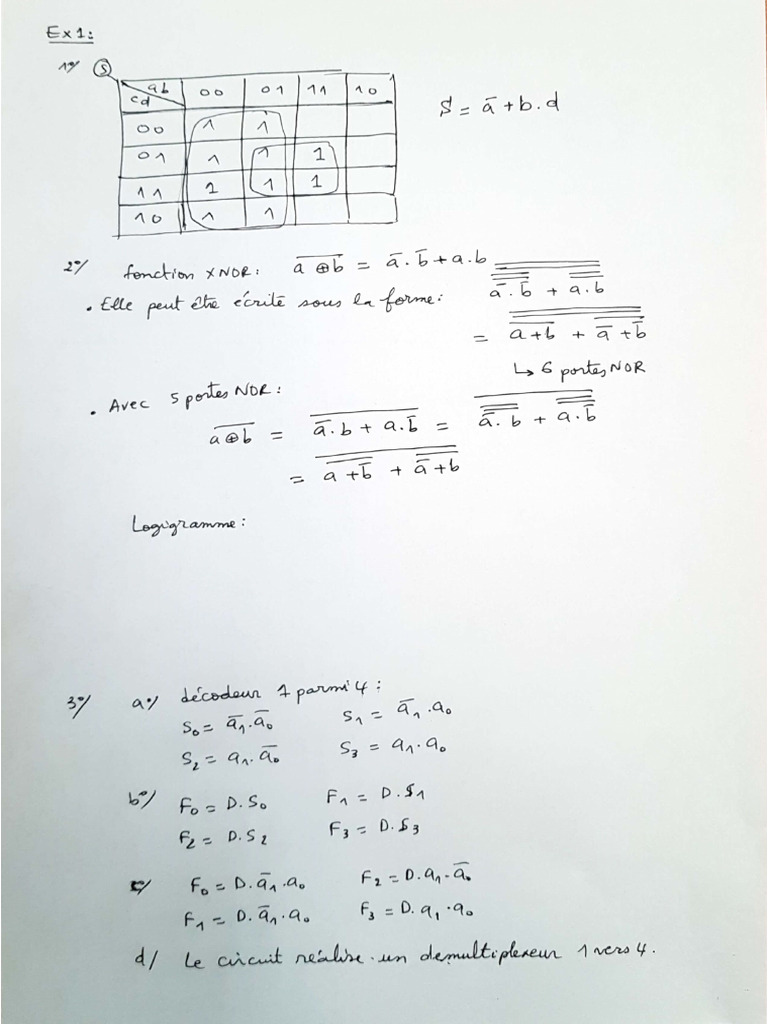 Ex 1:
1°/ S
ab
cd
00 01 11 10
00 1 1
01 1 1 1
11 1 1 1
10 1 1
S = a̅ + b.d
2°/ fonction XNOR: \overline{a ⊕ b} = a̅.b̅ + a.b
• Elle peut être écrite sous la forme: \overline{\overline{\overline{\overline{a̅.b̅}} + \overline{\overline{a.b}}}}
= \overline{\overline{\overline{a+b} + \overline{a̅+b̅}}}
↳ 6 portes NOR
• Avec 5 portes NOR:
\overline{a⊕b} = \overline{a̅.b + a.b̅} = \overline{\overline{\overline{a̅.b}} + \overline{\overline{a.b̅}}}
= \overline{\overline{a+b̅} + \overline{a̅+b}}
Logigramme:
3°/ a°/ décodeur 1 parmi 4:
S₀ = a̅₁.a̅₀ S₁ = a̅₁.a₀
S₂ = a₁.a̅₀ S₃ = a₁.a₀
b°/ F₀ = D.S₀ F₁ = D.S₁
F₂ = D.S₂ F₃ = D.S₃
c/ F₀ = D.a̅₁.a₀ F₂ = D.a₁.a̅₀
F₁ = D.a̅₁.a₀ F₃ = D.a₁.a₀
d/ Le circuit réalise un demultiplexeur 1 vers 4.